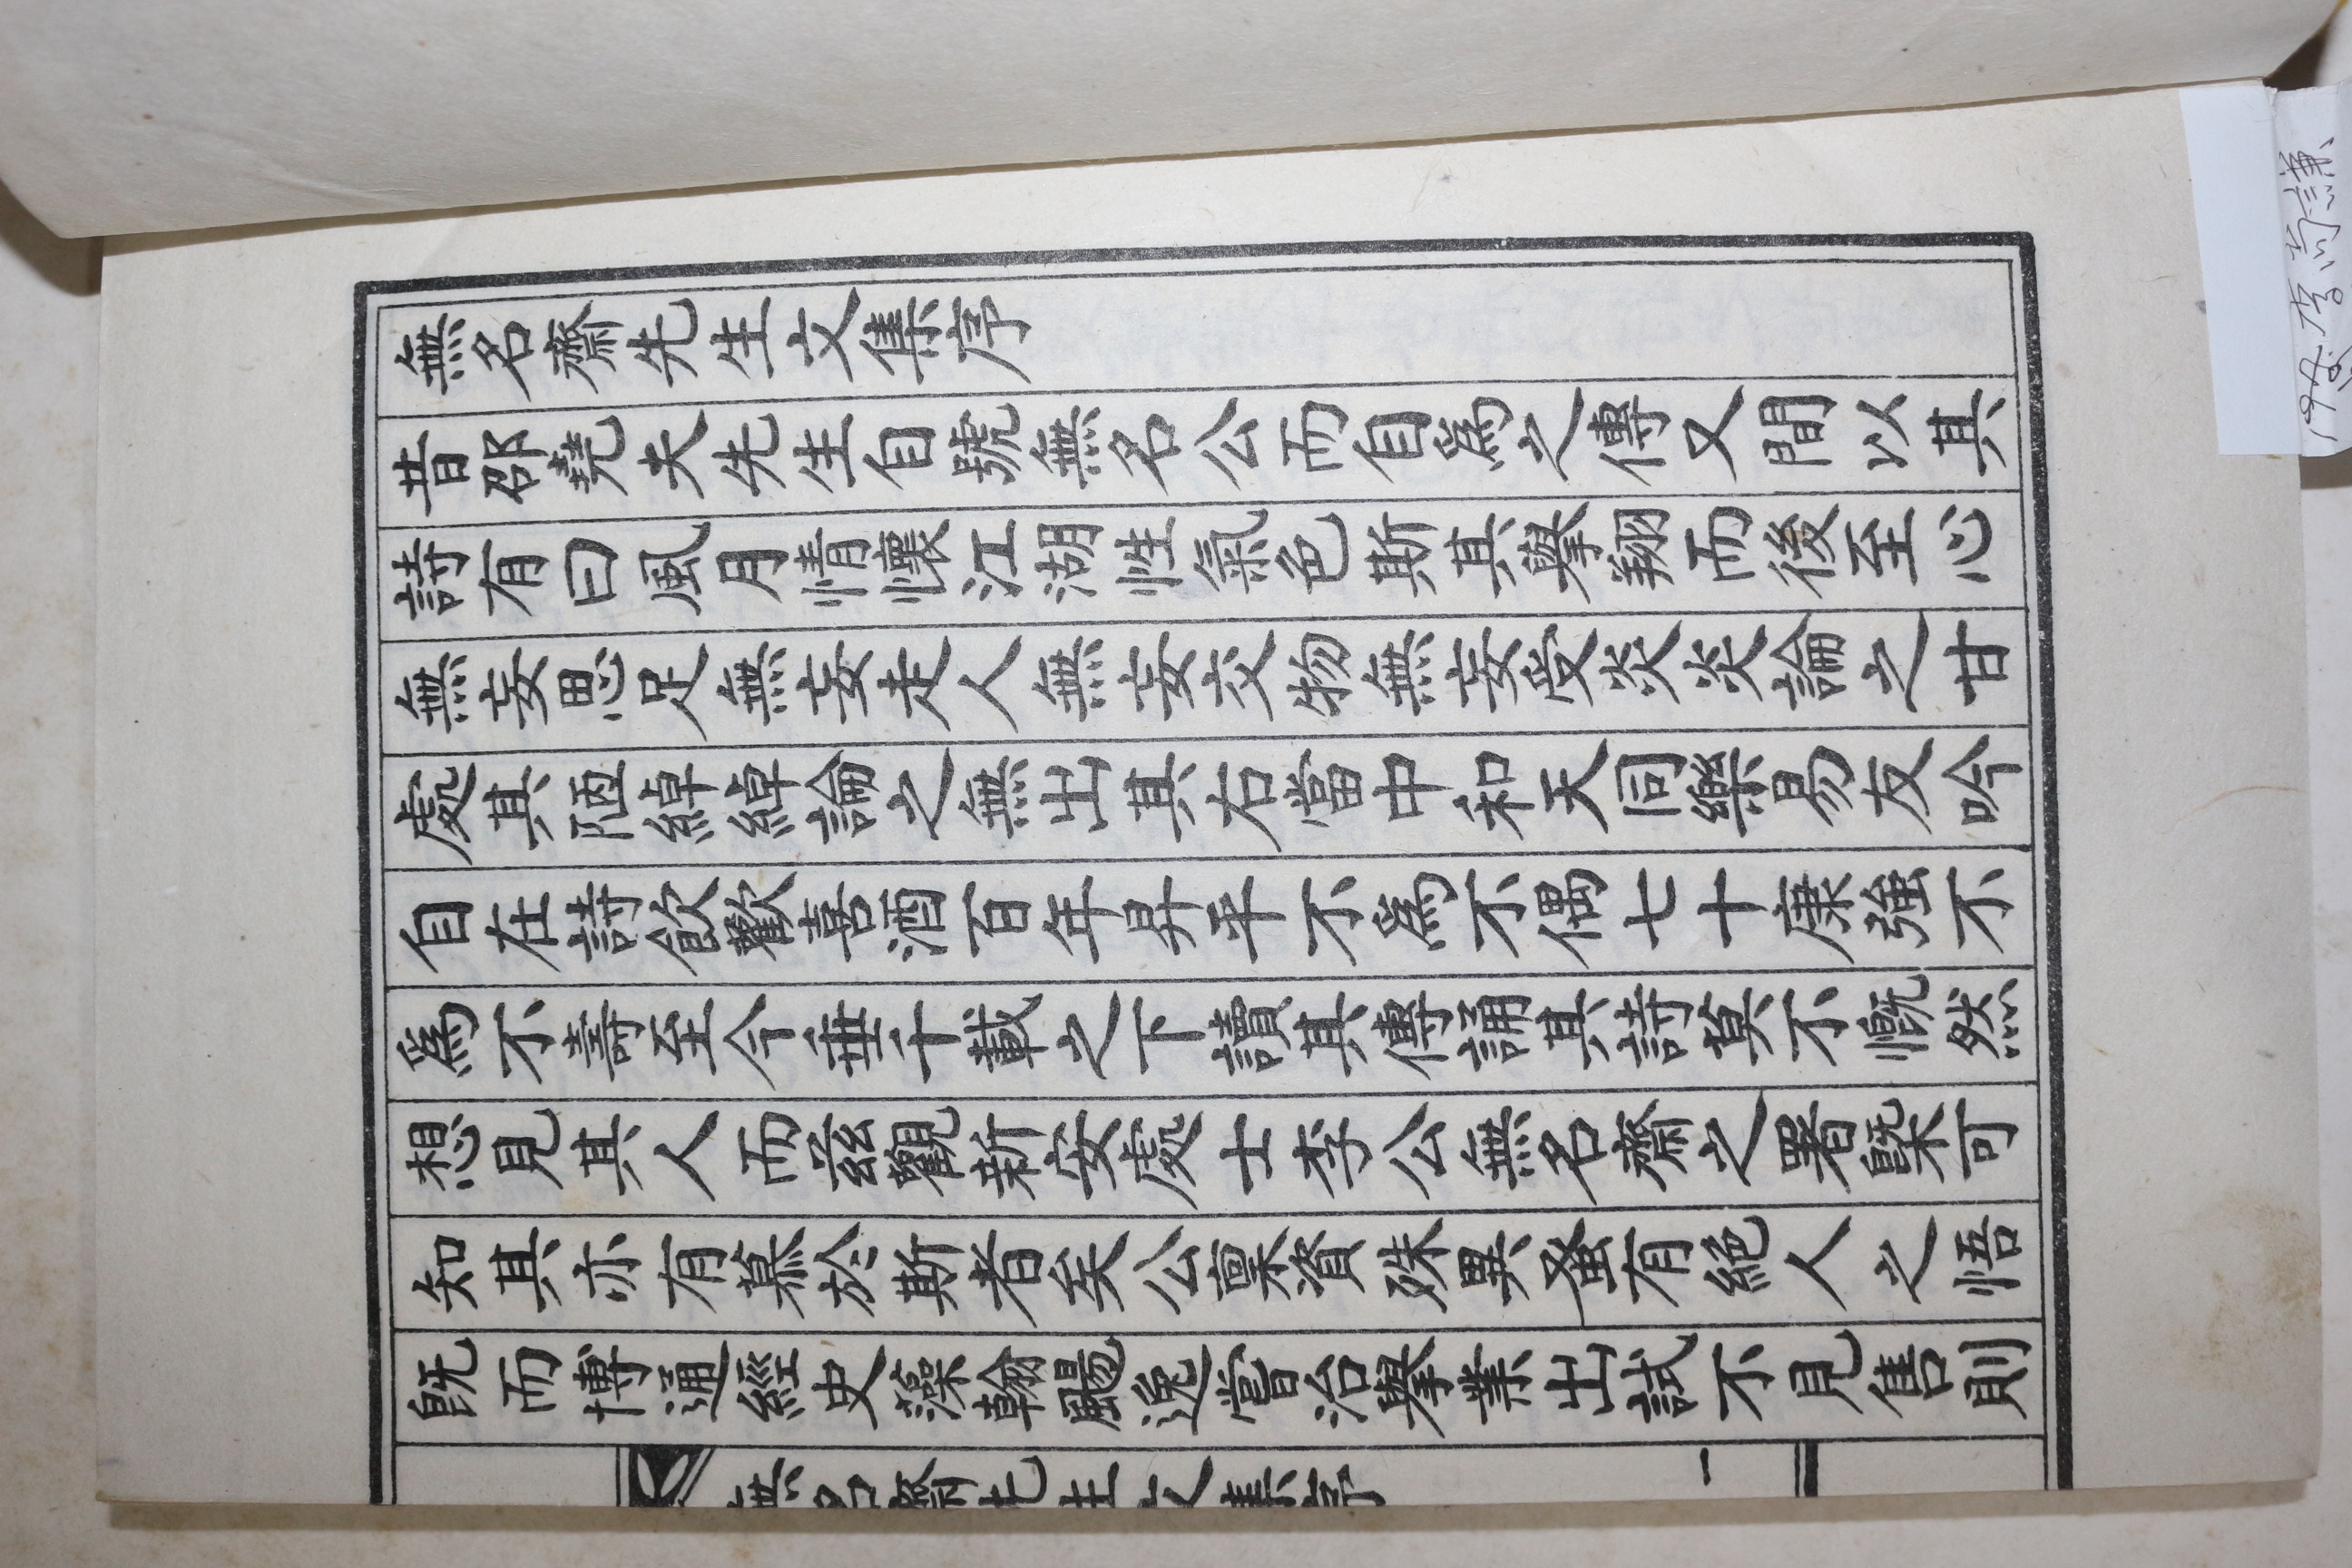 無名齋先生文集序
昔邵堯夫先生自號無名公而自爲之傳又間以其
詩有曰風月情懷江湖性氣色斯其擧翔而後至心
無妄思足無妄走人無妄交物無妄受炎炎論之甘
處其陋綽綽論之無出其右當中和天同樂易友吟
自在詩飮歡喜酒百年昇平不爲不偶七十康強不
爲不壽至今垂千載之下讀其傳誦其詩莫不慨然
想見其人而兹觀新安處士李公無名齋之署槩可
知其亦有慕於斯者矣公稟資殊異蚤有絶人之悟
旣而博通經史藻翰颺逸嘗治擧業出試不見售則
無名齋先生文集序
一
李尚謙